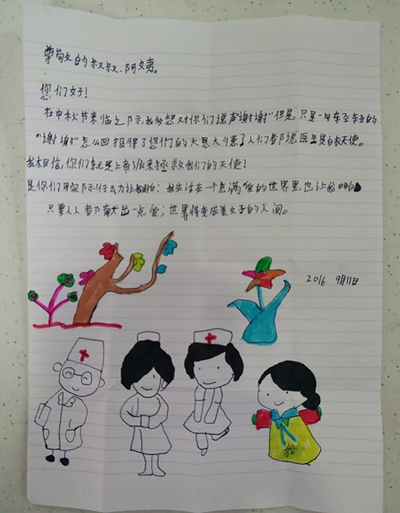 尊敬的叔叔、阿姨。
您们好！
在中秋节来临之际，我多想对你们说声谢谢"但是，只是一句轻轻的
"谢谢"怎么回报得了你们的大恩大德了人们都说医生是白衣天使。
我相信，你们就是上帝派来拯救我们的天使！
是你们用实际行动让我明白：我生活在一个充满爱的世界里，也让我明白
只要人人都献出一点爱；世界将变成美好的人间。
2016 9月11日